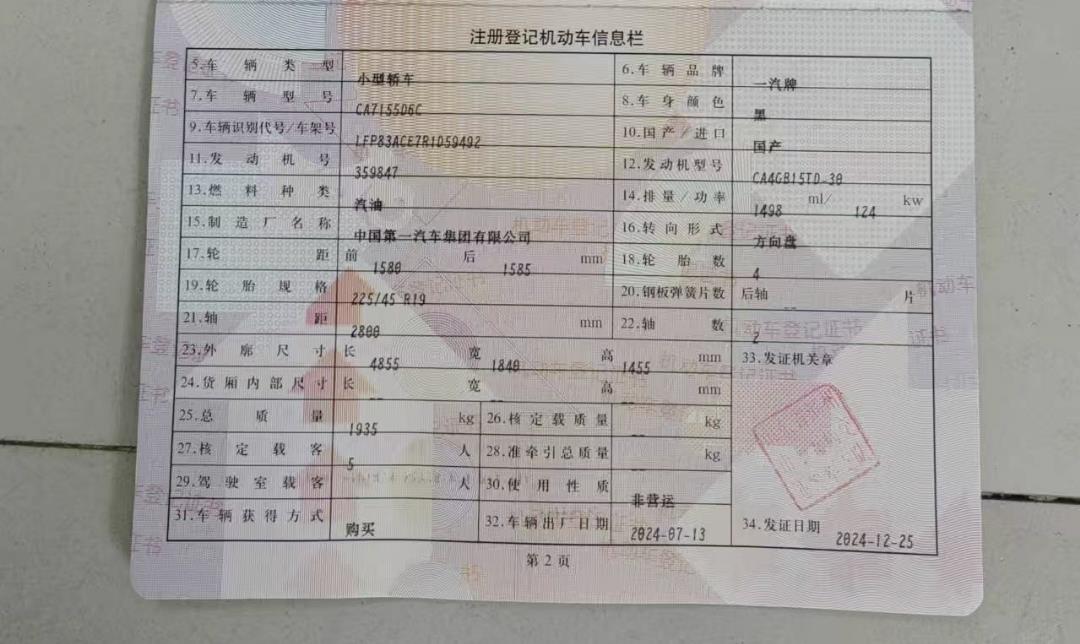 注册登记机动车信息栏
5.车辆类型 小型轿车 6.车辆品牌 一汽牌
7.车辆型号 CA7155D6C 8.车身颜色 黑
9.车辆识别代号/车架号 LFP83ACE7R1D59492 10.国产/进口 国产
11.发动机号 359847 12.发动机型号 CA4GB15TD-30
13.燃料种类 汽油 14.排量/功率 1498 ml/ 124 kw
15.制造厂名称 中国第一汽车集团有限公司 16.转向形式 方向盘
17.轮距 前 1580 后 1585 mm 18.轮胎数 4
19.轮胎规格 225/45 R19 20.钢板弹簧片数 后轴 -- 片
21.轴距 2800 mm 22.轴数 2
23.外廓尺寸 长 4855 宽 1840 高 1455 mm 33.发证机关章
24.货厢内部尺寸 长 -- 宽 -- 高 -- mm
25.总质量 1935 kg 26.核定载质量 -- kg
27.核定载客 5 人 28.准牵引总质量 -- kg
29.驾驶室载客 人 30.使用性质 非营运
31.车辆获得方式 购买 32.车辆出厂日期 2024-07-13 34.发证日期 2024-12-25
第2页